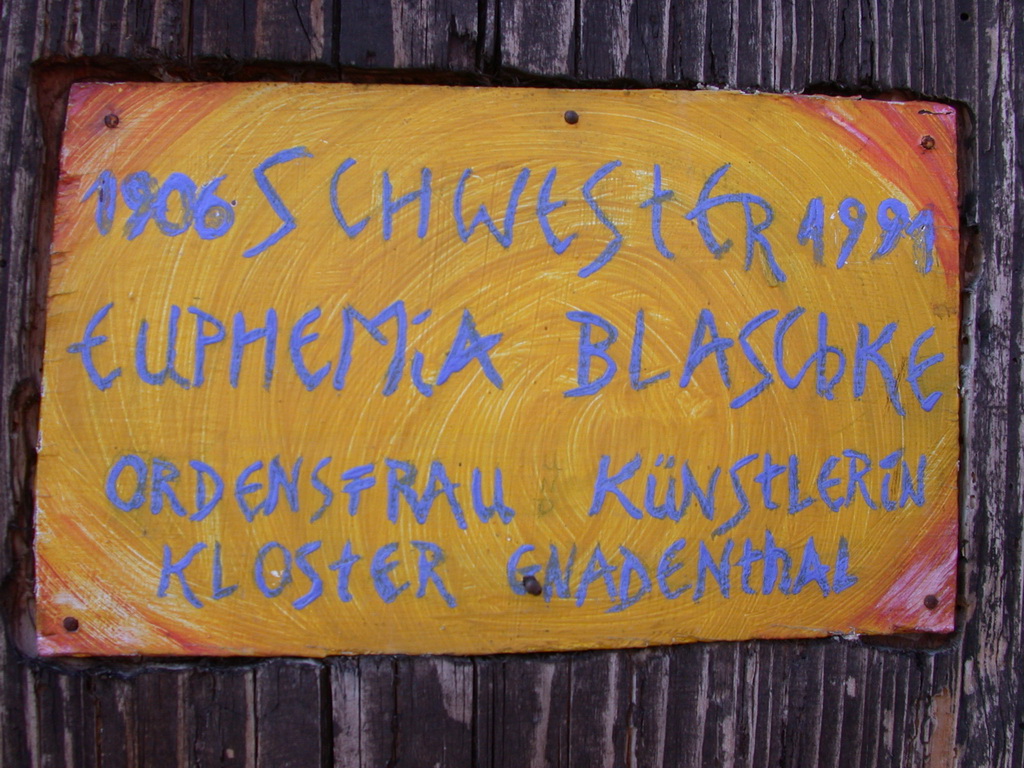 1906 SCHWEStER 1991
EUPHEMiA BLASChKE
ORDENSFRAU KÜNStLERIN
KLOStER GNADENthAL